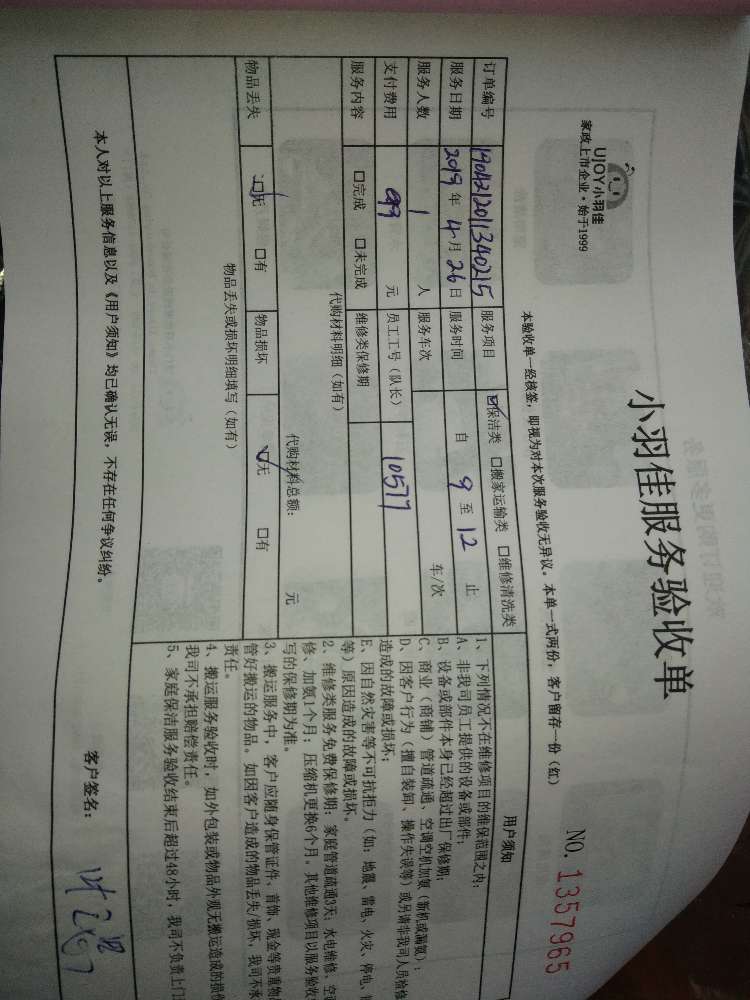 UJOY小羽佳
家政上市企业·始于1999
小羽佳服务验收单
NO. 1357965
本验收单一经核签，即视为对本次服务验收无异议。本单一式两份，客户留存一份（红）
订单编号 190421201340215 服务项目 ☑保洁类 □搬家运输类 □维修清洗类
服务日期 2019年4月26日 服务时间 自 9 至 12 止
服务人数 1 人 服务车次 车/次
支付费用 99 元 员工工号（队长） 10577
服务内容 □完成 □未完成 维修类保修期
代购材料明细（如有）
代购材料总额： 元
物品丢失 ☑无 □有 物品损坏 ☑无 □有
物品丢失或损坏明细填写（如有）
用户须知
1、下列情况不在维修项目的维保范围之内：
A、非我司员工提供的设备或部件；
B、设备或部件本身已经超过出厂保修期；
C、商业（商铺）管道疏通、空调空机加氨（新机或漏氨）；
D、因客户行为（擅自装卸、操作失误等）或另请非我司人员检修
造成的故障或损坏；
E、因自然灾害等不可抗拒力（如：地震、雷电、火灾、停电、
等）原因造成的故障或损坏。
2、维修类服务免费保修期：家庭管道疏通3天；水电维修、空
修、加氨1个月；压缩机更换6个月。其他维修项目以服务验收
写的保修期为准。
3、搬运服务中，客户应随身保管证件、首饰、现金等贵重物
管好搬运的物品。如因客户造成的物品丢失/损坏，我司不承
责任。
4、搬运服务验收时，如外包装或物品外观无搬运造成的损
我司不承担赔偿责任。
5、家庭保洁服务验收结束后超过48小时，我司不负责上门
本人对以上服务信息以及《用户须知》均已确认无误，不存在任何争议纠纷。
客户签名：